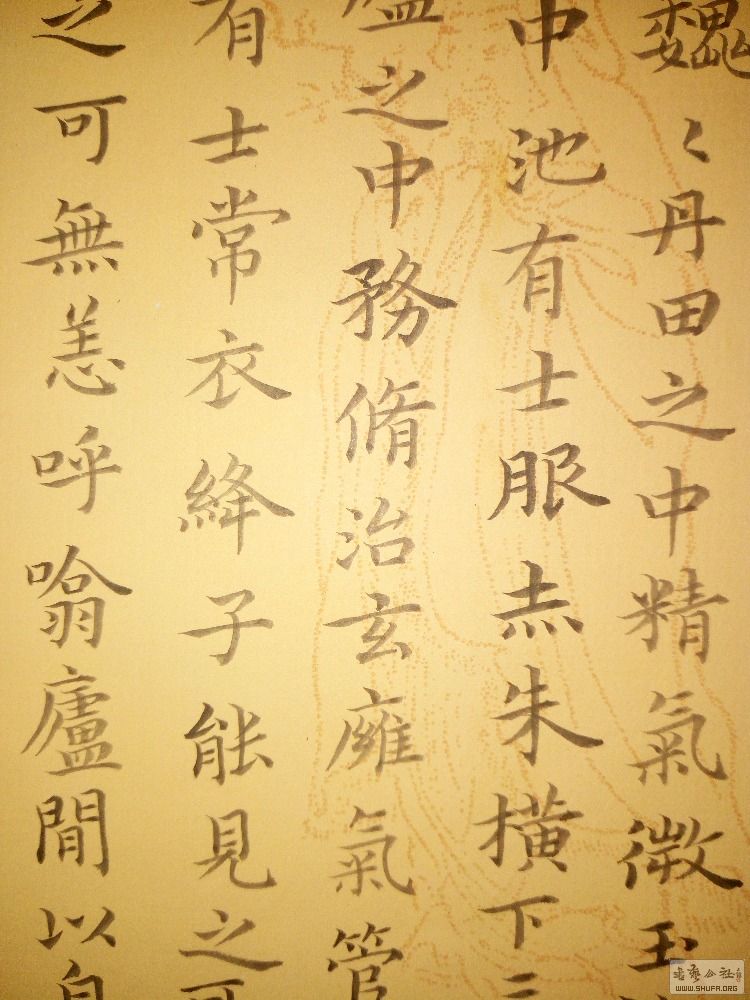 巍〻丹田之中精氣微玉
中池有士服赤朱橫下三
盧之中務脩治玄廱氣管
有士常衣絳子能見之可
之可無恙呼噏廬間以自
WWW.SHUFA.ORG